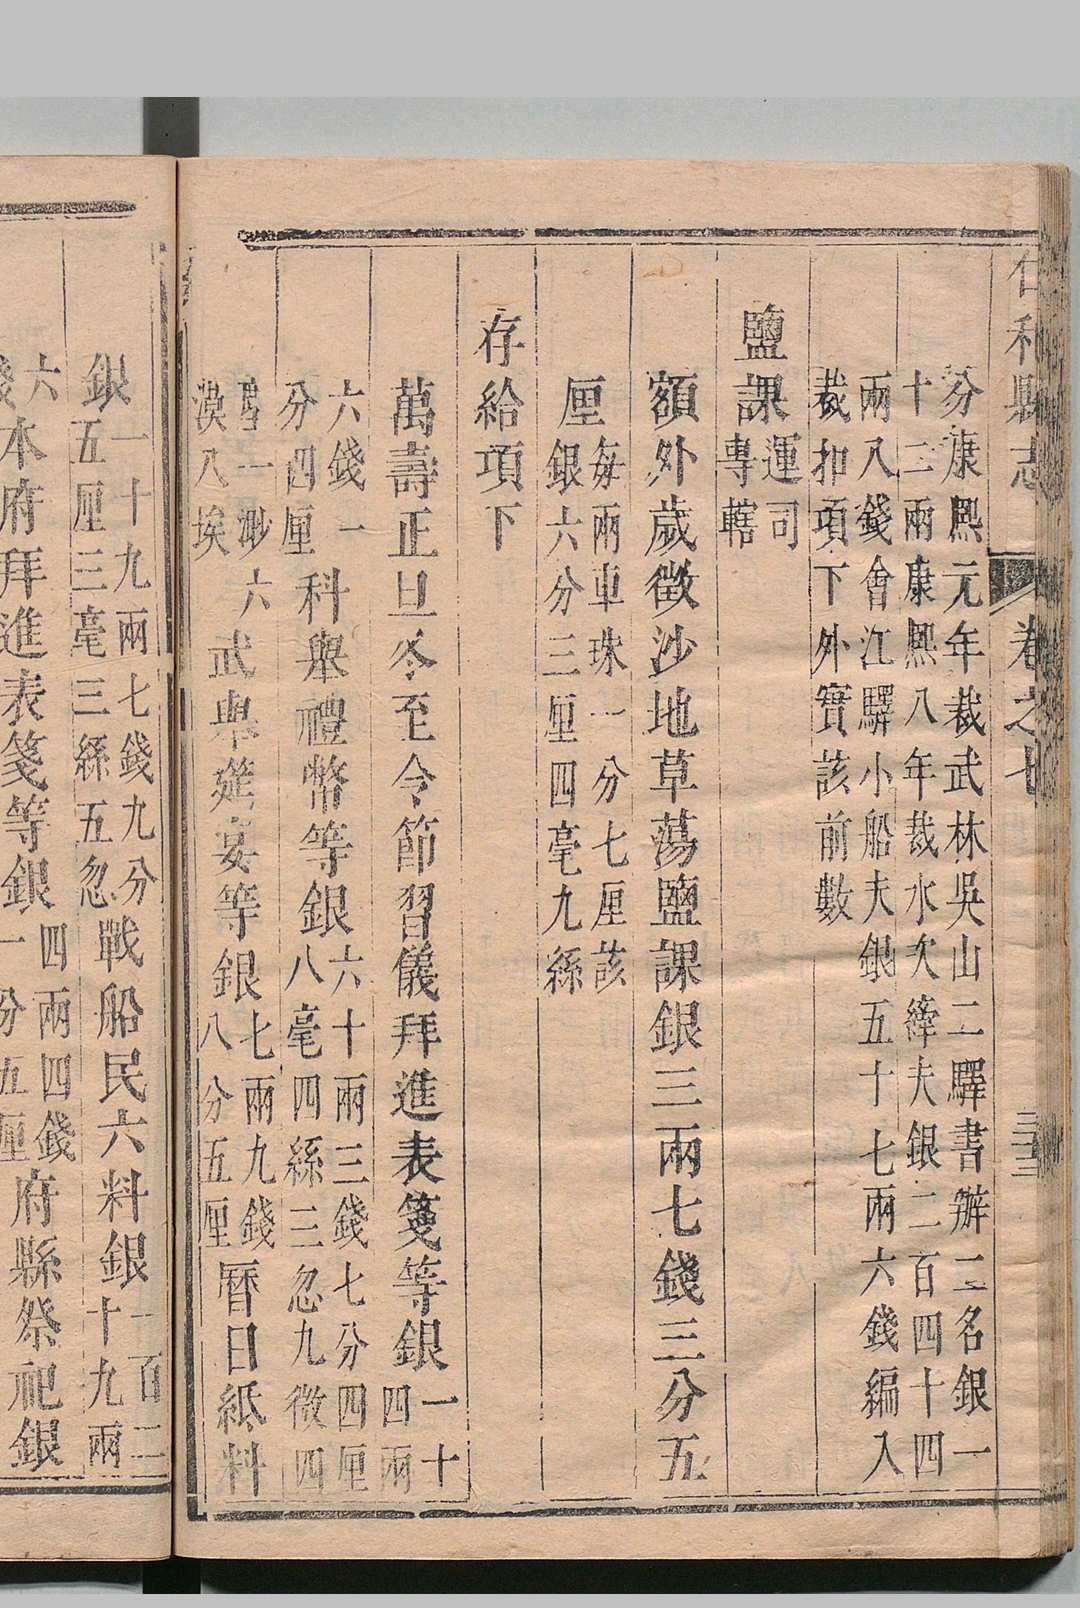 仁和縣志 卷之七
分康熙元年裁武林吳山二驛書辦二名銀一
十二兩康熙八年裁水次縴夫銀二百四十四
兩八錢會江驛小船夫銀五十七兩六錢編入
裁扣項下外實該前數
鹽課運司專轄
額外歲徵沙地草蕩鹽課銀三兩七錢三分五
厘每兩車珠一分七厘該銀六分三厘四毫九絲
存給項下
萬壽正旦冬至令節習儀拜進表箋等銀一十四兩
六錢一分四厘科舉禮幣等銀六十兩三錢七分四厘八毫四絲三忽九微四
渺六漠八埃武舉筵宴等銀七兩九錢八分五厘曆日紙料
銀一十九兩七錢九分五厘三毫三絲五忽戰船民六料銀一百二十九兩
六錢本府拜進表箋等銀四兩四錢一分五厘府縣祭祀銀